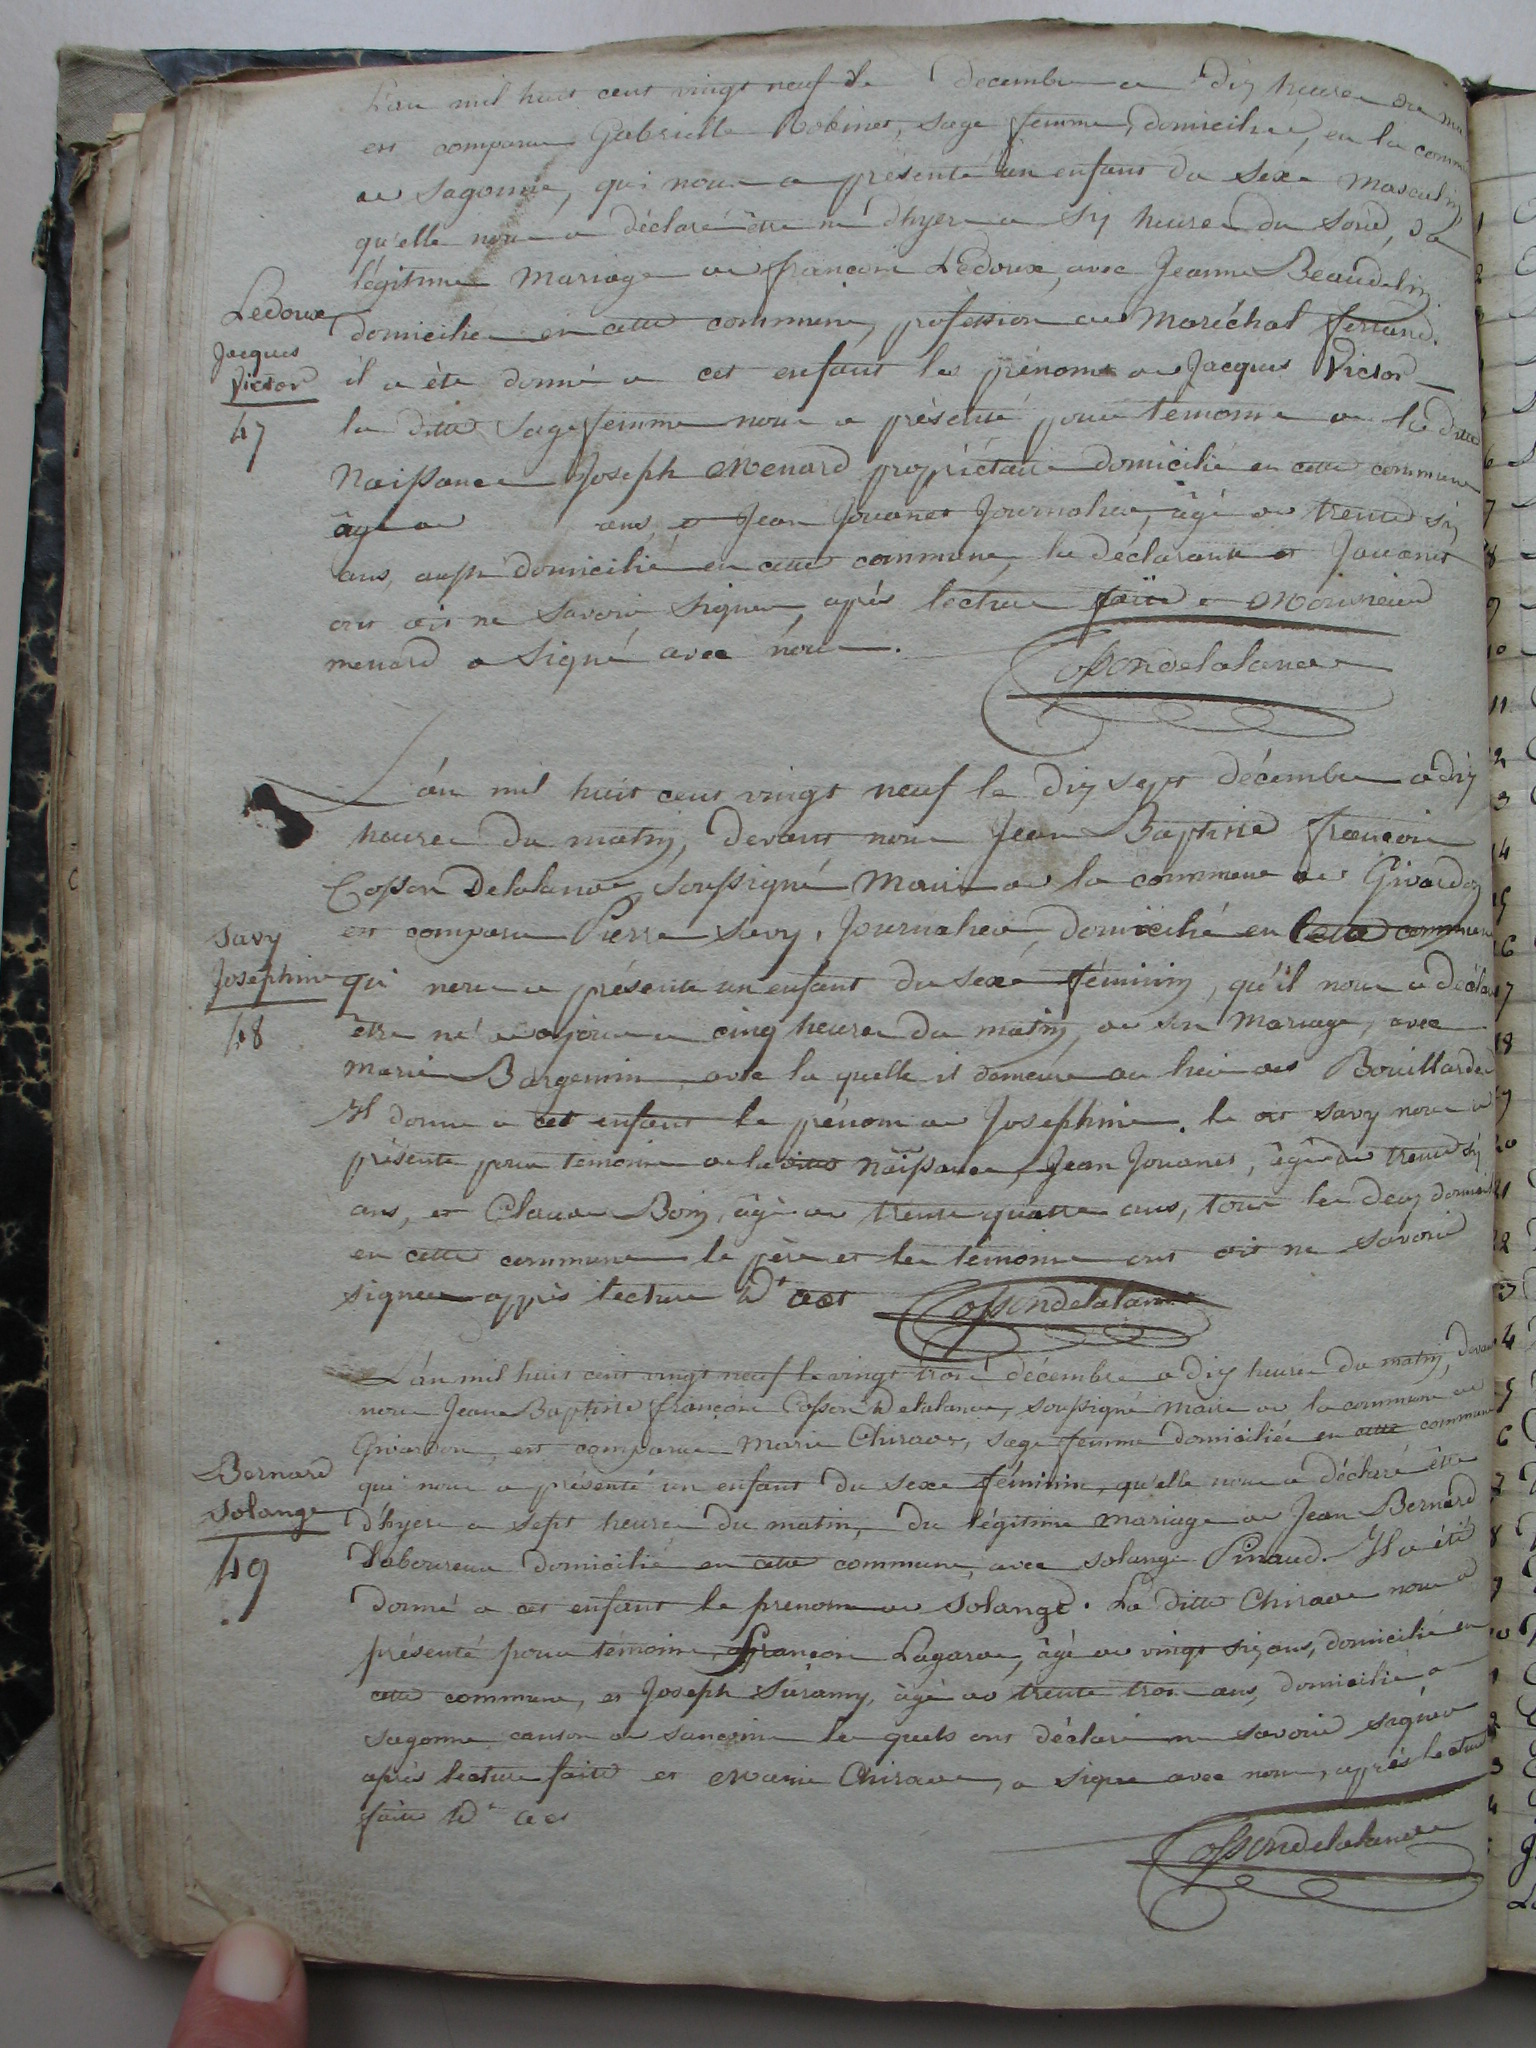 L'an mil huit cent vingt neuf le decembre a dix heures du ma
est comparu Gabrielle Robinet, sage femme, domiciliée, en la comm
de Sagonne, qui nous a présenté un enfant du sexe masculin
qu'elle nous a déclaré être né d'hyer a six heures du soir, du
légitime mariage de françois Ledoux, avec Jeanne Beaudelin
domicilié en cette commune, profession de Maréchal ferrand.
il a été donné a cet enfant les prénoms de Jacques Victor
la ditte sage femme nous a présenté pour temoins de la ditte
Naissance Joseph Menard propriétaire domicilié en cette commune
âgé de ans, et Jean Jouanet Journalier, âgé de trente six
ans, aussi domicilié en cette commune, la déclarante et Jouanet
ont dit ne savoir signer, après lecture faite et Monsieur
menard a signé avec nous.
Cossondelalande
Ledoux
Jacques
Victor
47
L'an mil huit cent vingt neuf le dix sept décembre a dix
heures du matin, devant nous Jean Baptiste françois
Cosson Delalande, soussigné, Maire de la commune de Givardon
est comparu Pierre Savy, Journalier, domicilié en cette commune
qui nous a présenté un enfant du sexe féminin, qu'il nous a décla
être né de ce jour a cinq heures du matin, de son mariage, avec
Marie Bargemin, avec la quelle il demeure au lieu des Bouillards
Il donne a cet enfant le prénom de Josephine. le dit Savy nous a
présenté pour temoins de la ditte Naissance, Jean Jouanet, âgé de trente six
ans, et Claude Boin, âgé de trente quatre ans, tous les deux domicil
en cette commune le père et les témoins ont dit ne savoir
signer après lecture du d.t acte
Cossondelalande
Savy
Josephine
48
L'an mil huit cent vingt neuf le vingt trois décembre a dix heures du matin, devant
nous Jean Baptiste françois Cosson Delalande, soussigné maire de la commune de
Givardon, est comparue Marie Chirade, sage femme domiciliée en cette commune
qui nous a présenté un enfant du sexe féminin, qu'elle nous a déclaré être
d'hyer a sept heures du matin, du légitime mariage de Jean Bernard
Laboureur domicilié en cette commune, avec Solange Pinaud. Il a été
donné a cet enfant le prenom de Solange. La ditte Chirade nous a
présenté pour témoins, françois Lagarde, âgé de vingt six ans, domicilié en
cette commune, et Joseph Suramy, âgé de trente trois ans, domicilié a
Sagonne canton de Sancoins les quels ont déclaré ne savoir signer
après lecture faite et Marie Chirade, a signé avec nous, après lecture
faite du d.t acte
Cossondelalande
Bernard
Solange
49